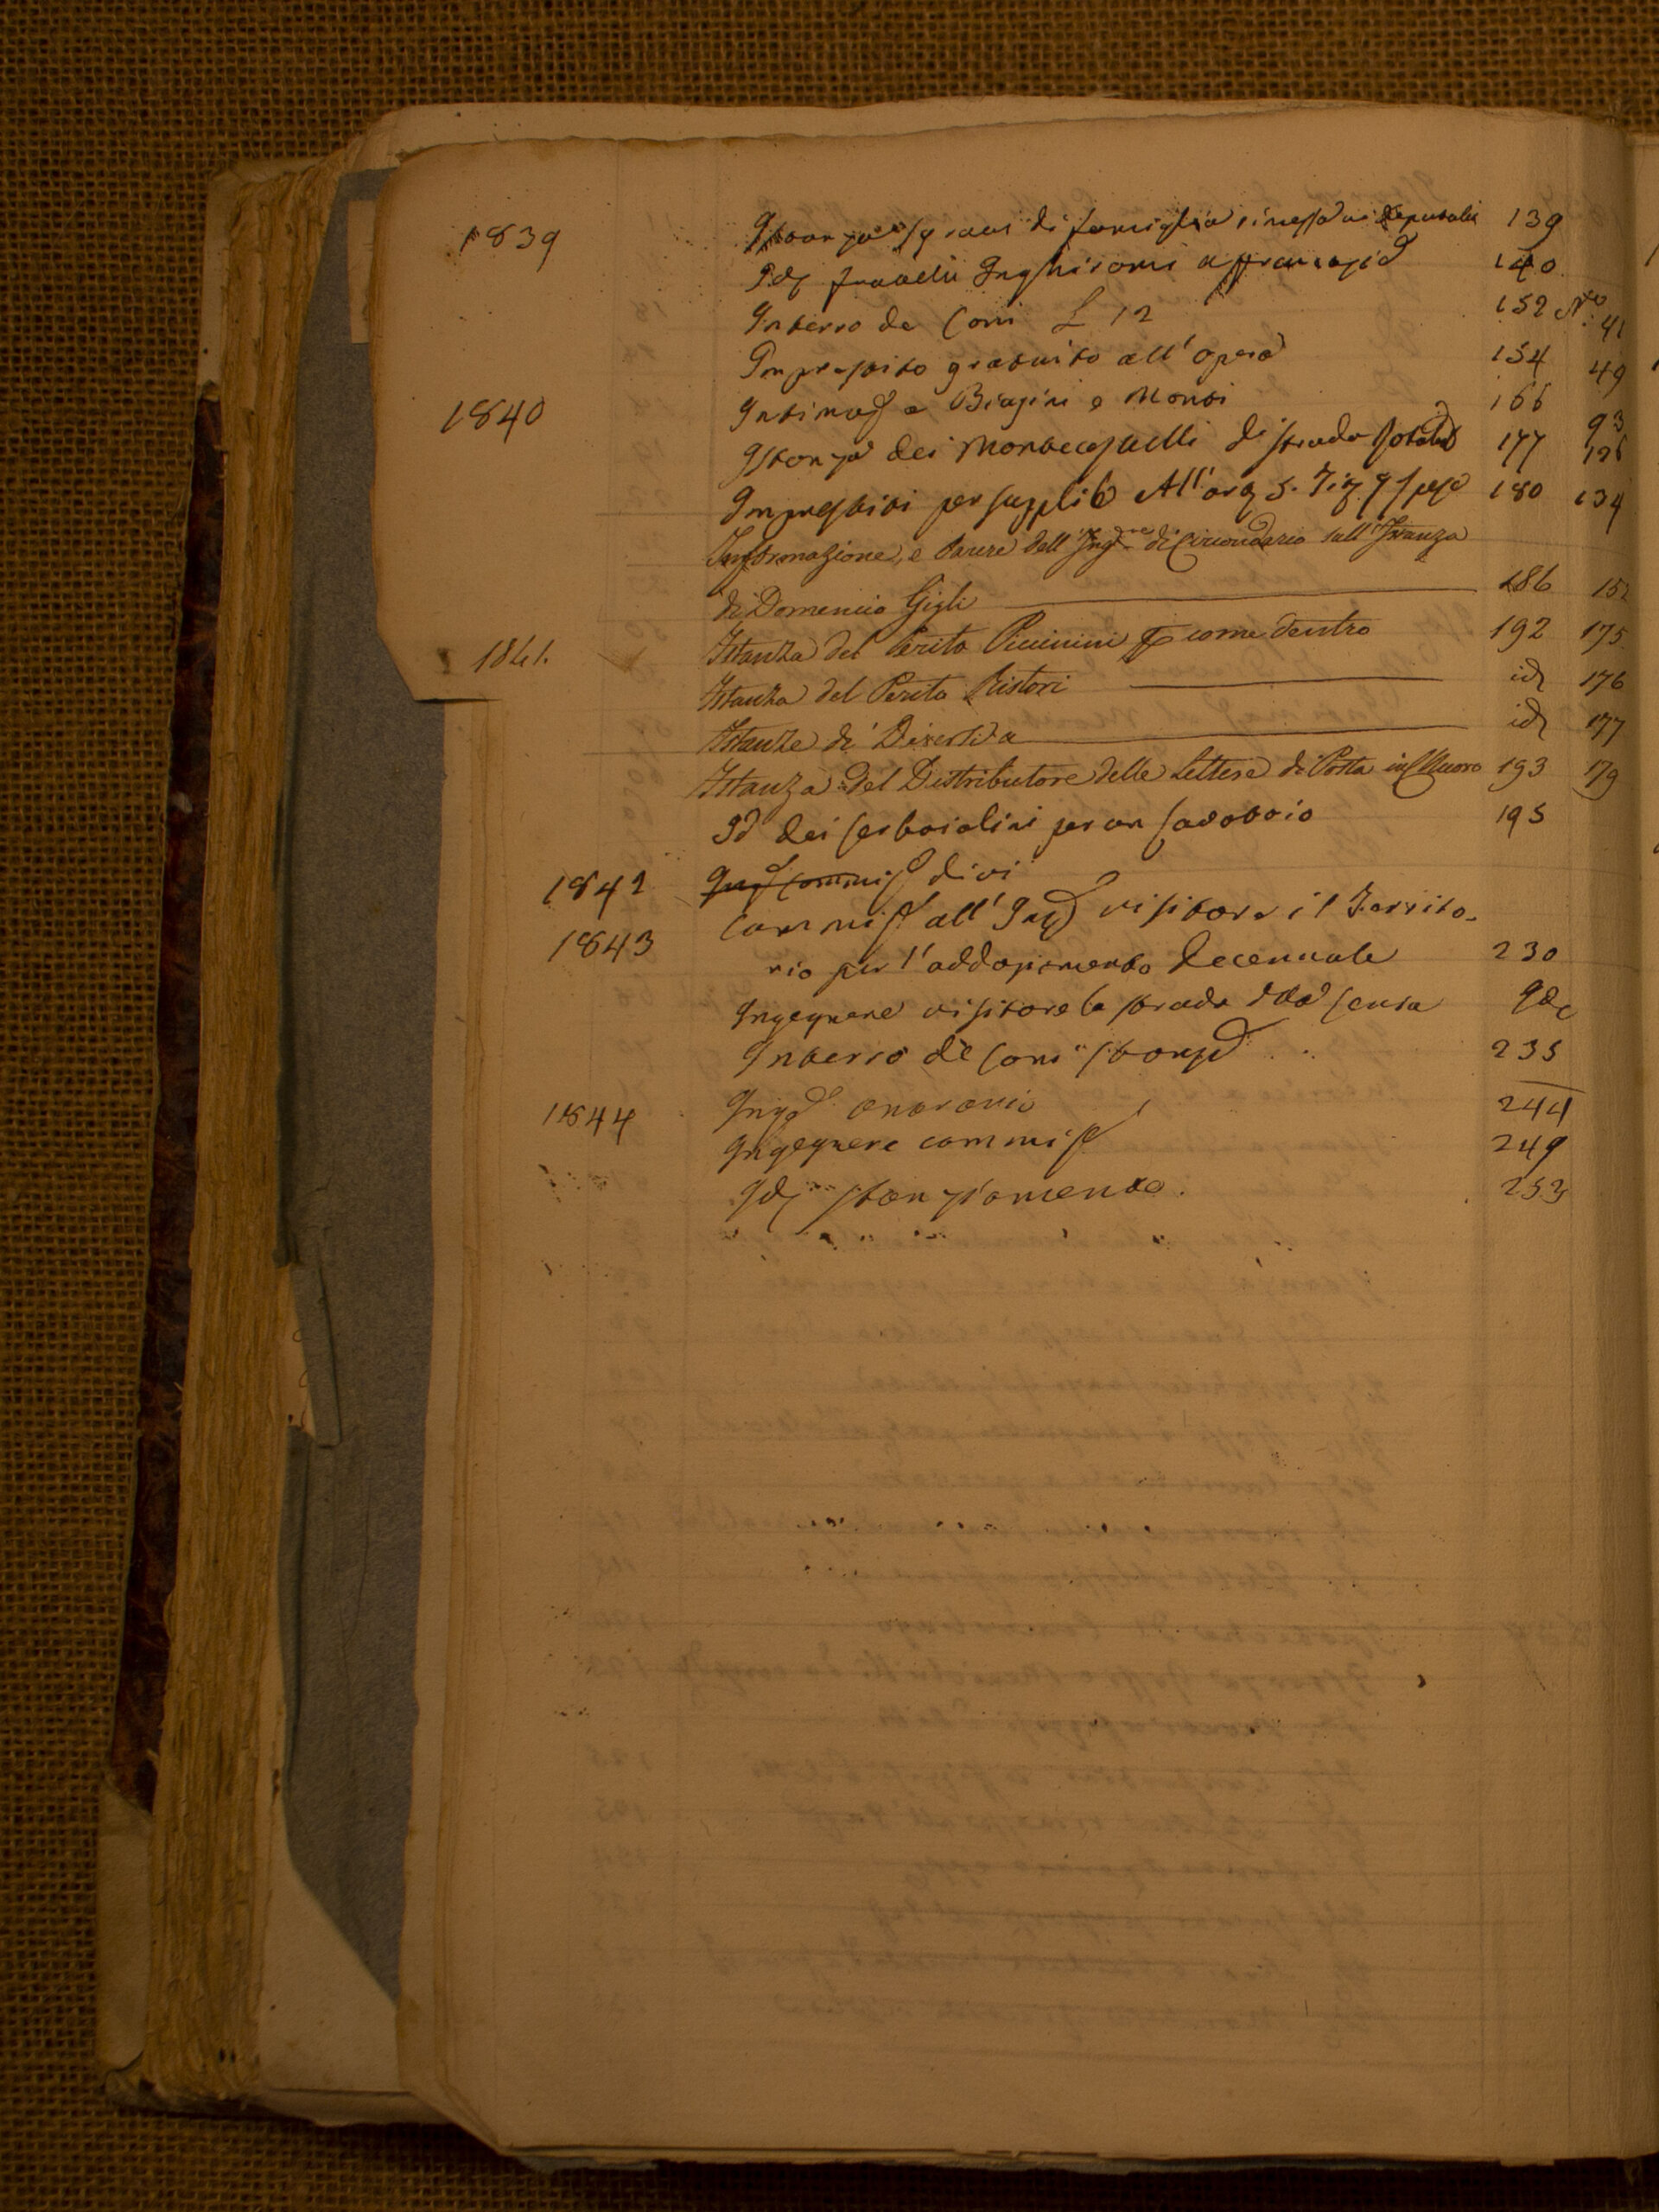 1839 Istanza sgravi di famiglia rimessa ai Deputati 139
Id fratelli Inghirami affrancazid 140
Interro de Cani £ 12 152 N.o 41
Imprestito gratuito all'opera 154 49
1840 Intimaz a Biagini e Monti 166 93
Istanza dei Montecastelli di strada 177 126
Imprestiti per suppli All' 180 134
Informazione, e Parere dell'Ing.re di Circondario sull'Istanza
di Domenico Gigli 186 152
1841. Istanza del Perito Piccinini come dentro 192 175
Istanza del Perito Ristori id 176
Istanze di Diversi id 177
Istanza del Distributore delle Lettere di Posta in 193 179
Id dei Serbaiolini per un lavatoio 195
1842 divi
1843 Commiss all' Ing visitare il Territo-
rio per l'addaziamento Decennale 230
Ingegnere visitare la strada senza Idc
Interro de Cani stanz 235
1844 Ing onorario 244
Ingegnere commiss 249
Id stanziamento. 253